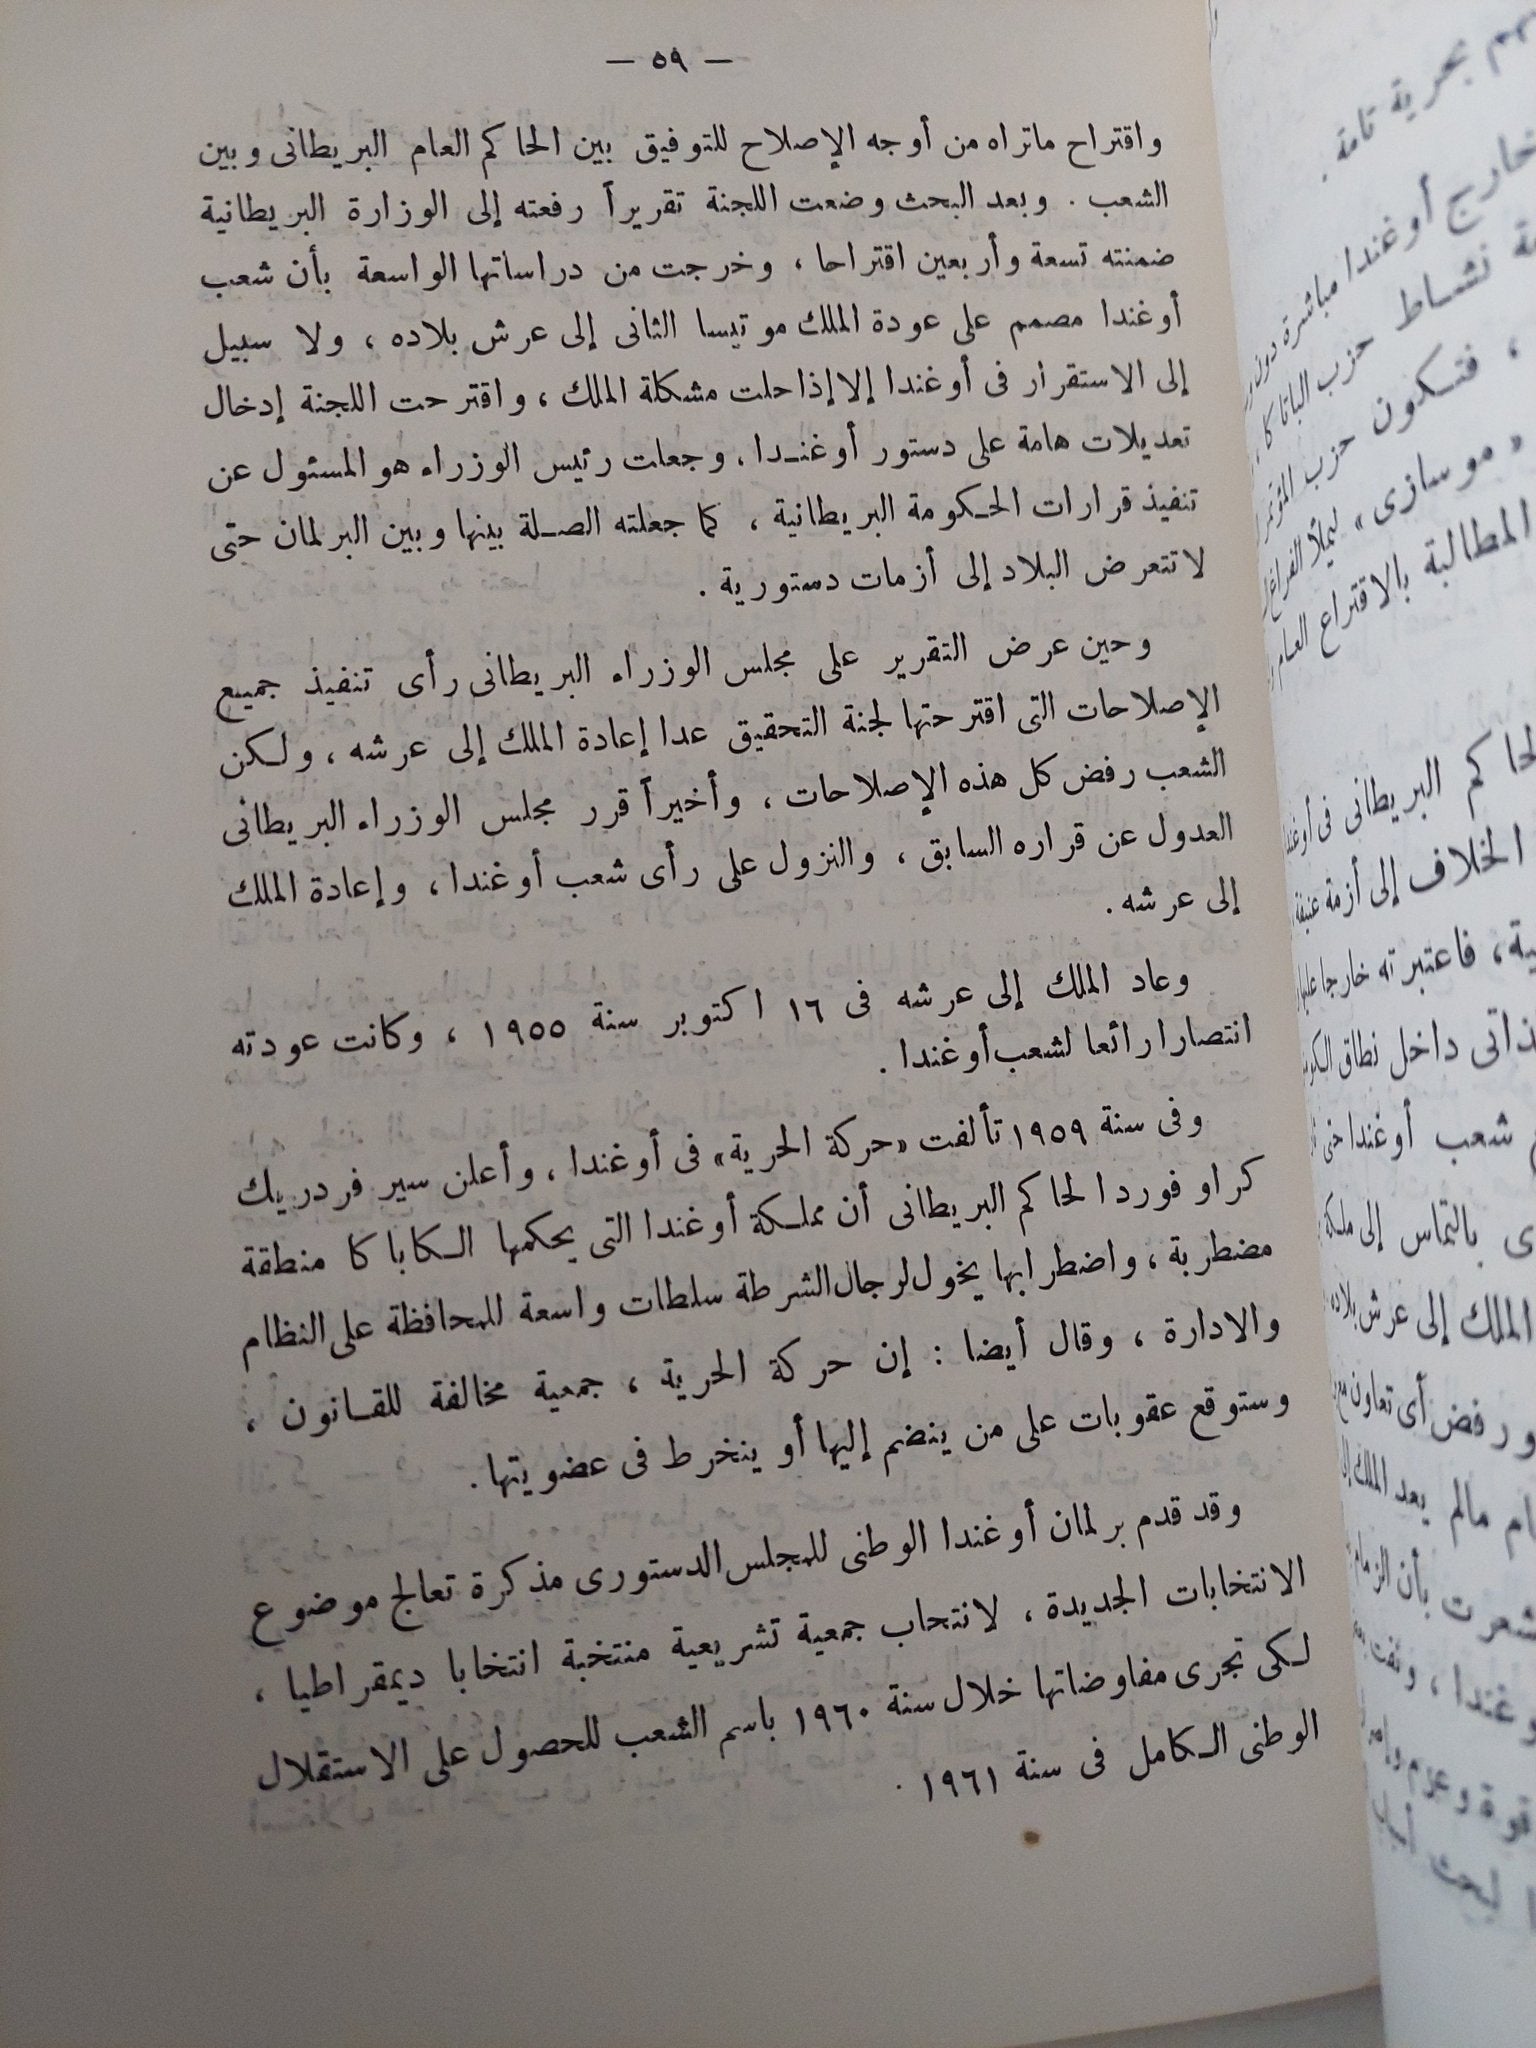 — ٥٩ —
واقتراح ماتراه من أوجه الإصلاح للتوفيق بين الحاكم العام البريطانى وبين
الشعب . وبعد البحث وضعت اللجنة تقريراً رفعته إلى الوزارة البريطانية
ضمنته تسعة وأربعين اقتراحا ، وخرجت من دراساتها الواسعة بأن شعب
أوغندا مصمم على عودة الملك موتيسا الثانى إلى عرش بلاده ، ولا سبيل
إلى الاستقرار فى أوغندا إلا إذا حلت مشكلة الملك ، واقترحت اللجنة إدخال
تعديلات هامة على دستور أوغندا ، وجعلت رئيس الوزراء هو المسئول عن
تنفيذ قرارات الحكومة البريطانية ، كما جعلته الصلة بينها وبين البرلمان حتى
لا تتعرض البلاد إلى أزمات دستورية .
وحين عرض التقرير على مجلس الوزراء البريطانى رأى تنفيذ جميع
الإصلاحات التى اقترحتها لجنة التحقيق عدا إعادة الملك إلى عرشه ، ولكن
الشعب رفض كل هذه الإصلاحات ، وأخيراً قرر مجلس الوزراء البريطانى
العدول عن قراره السابق ، والنزول على رأى شعب أوغندا ، وإعادة الملك
إلى عرشه .
وعاد الملك إلى عرشه فى ١٦ اكتوبر سنة ١٩٥٥ ، وكانت عودته
انتصارا رائعا لشعب أوغندا .
وفى سنة ١٩٥٩ تألفت «حركة الحرية» فى أوغندا ، وأعلن سير فردريك
كراوفورد الحاكم البريطانى أن مملكة أوغندا التى يحكمها الكاباكا منطقة
مضطربة ، واضطرابها يخول لرجال الشرطة سلطات واسعة للمحافظة على النظام
والادارة ، وقال أيضا : إن حركة الحرية ، جمعية مخالفة للقانون ،
وستوقع عقوبات على من ينضم إليها أو ينخرط فى عضويتها .
وقد قدم برلمان أوغندا الوطنى للمجلس الدستورى مذكرة تعالج موضوع
الانتخابات الجديدة ، لانتحاب جمعية تشريعية منتخبة انتخابا ديمقراطيا ،
لكى تجرى مفاوضاتها خلال سنة ١٩٦٠ باسم الشعب للحصول على الاستقلال
الوطنى الكامل فى سنة ١٩٦١ .
بحرية تامة .
خارج أوغندا مباشرة دون
نشاط حزب الباتاكا
، فتكون حزب المؤتمر
« موسازى » ليملأ الفراغ
المطالبة بالاقتراع العام
البريطانى فى
الخلاف إلى أزمة عنيفة
فاعتبرته خارجا عليها
داخل نطاق
شعب أوغندا حتى
بالتماس إلى ملكة
الملك إلى عرش بلاده
ورفض أى تعاون مع
مالم يعد الملك
بأن الزمام
قوة وعزم